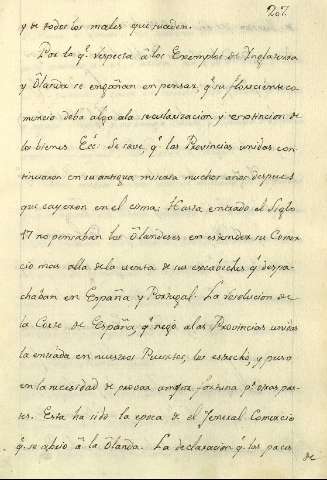 207.
y de todos los males que suceden.
Por lo q.e respecta â los Exemplos de Ynglaterra
y Olanda se engañan en pensar, q.e su floreciente co-
mercio deba algo ala secularizacion y extincion de
los bienes Ecc.s Se save, q.e las Provincias unidas con-
tinuaron en su antigua miseria muchos años despues
que cayeron en el cisma: Hasta entrado el Siglo
17 no pensaban los Olandeses en estender su Comer-
cio mas alla de la venta de sus escabeches q.e despa-
chaban en España y Portugal. La resolucion de
la Corte de España, q.e negó alas Provincias unidas
la entrada en nuestros Puertos, los estrechó, y puso
en la necesidad de provar mejor fortuna p.r otras par-
tes. Esta ha sido la epoca de el General Comercio
q.e se abrio â la Olanda. La declaracion q.e las paces
de